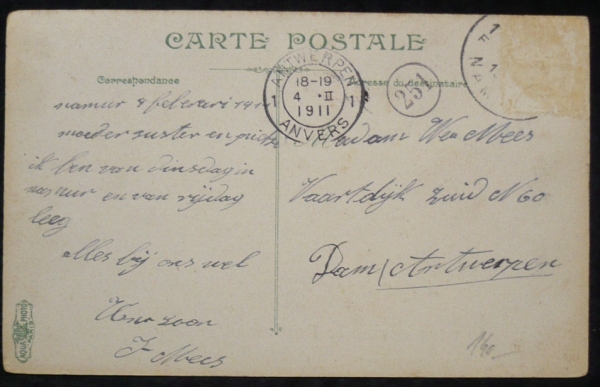 CARTE POSTALE
Correspondance
Adresse du destinataire
ANTWERPEN
18-19
4 ·II
1 1
1911
ANVERS
231
namur 4 februari
moeder suster en
ik ben van dinsdag in
namur en van vrijdag
leeg
alles bij ons wel
Uw zoon
J Mees
Madam We Mees
Vaartdijk Zuid N 60
Dam/Antwerpen
AQUA PHOTO
PARIS